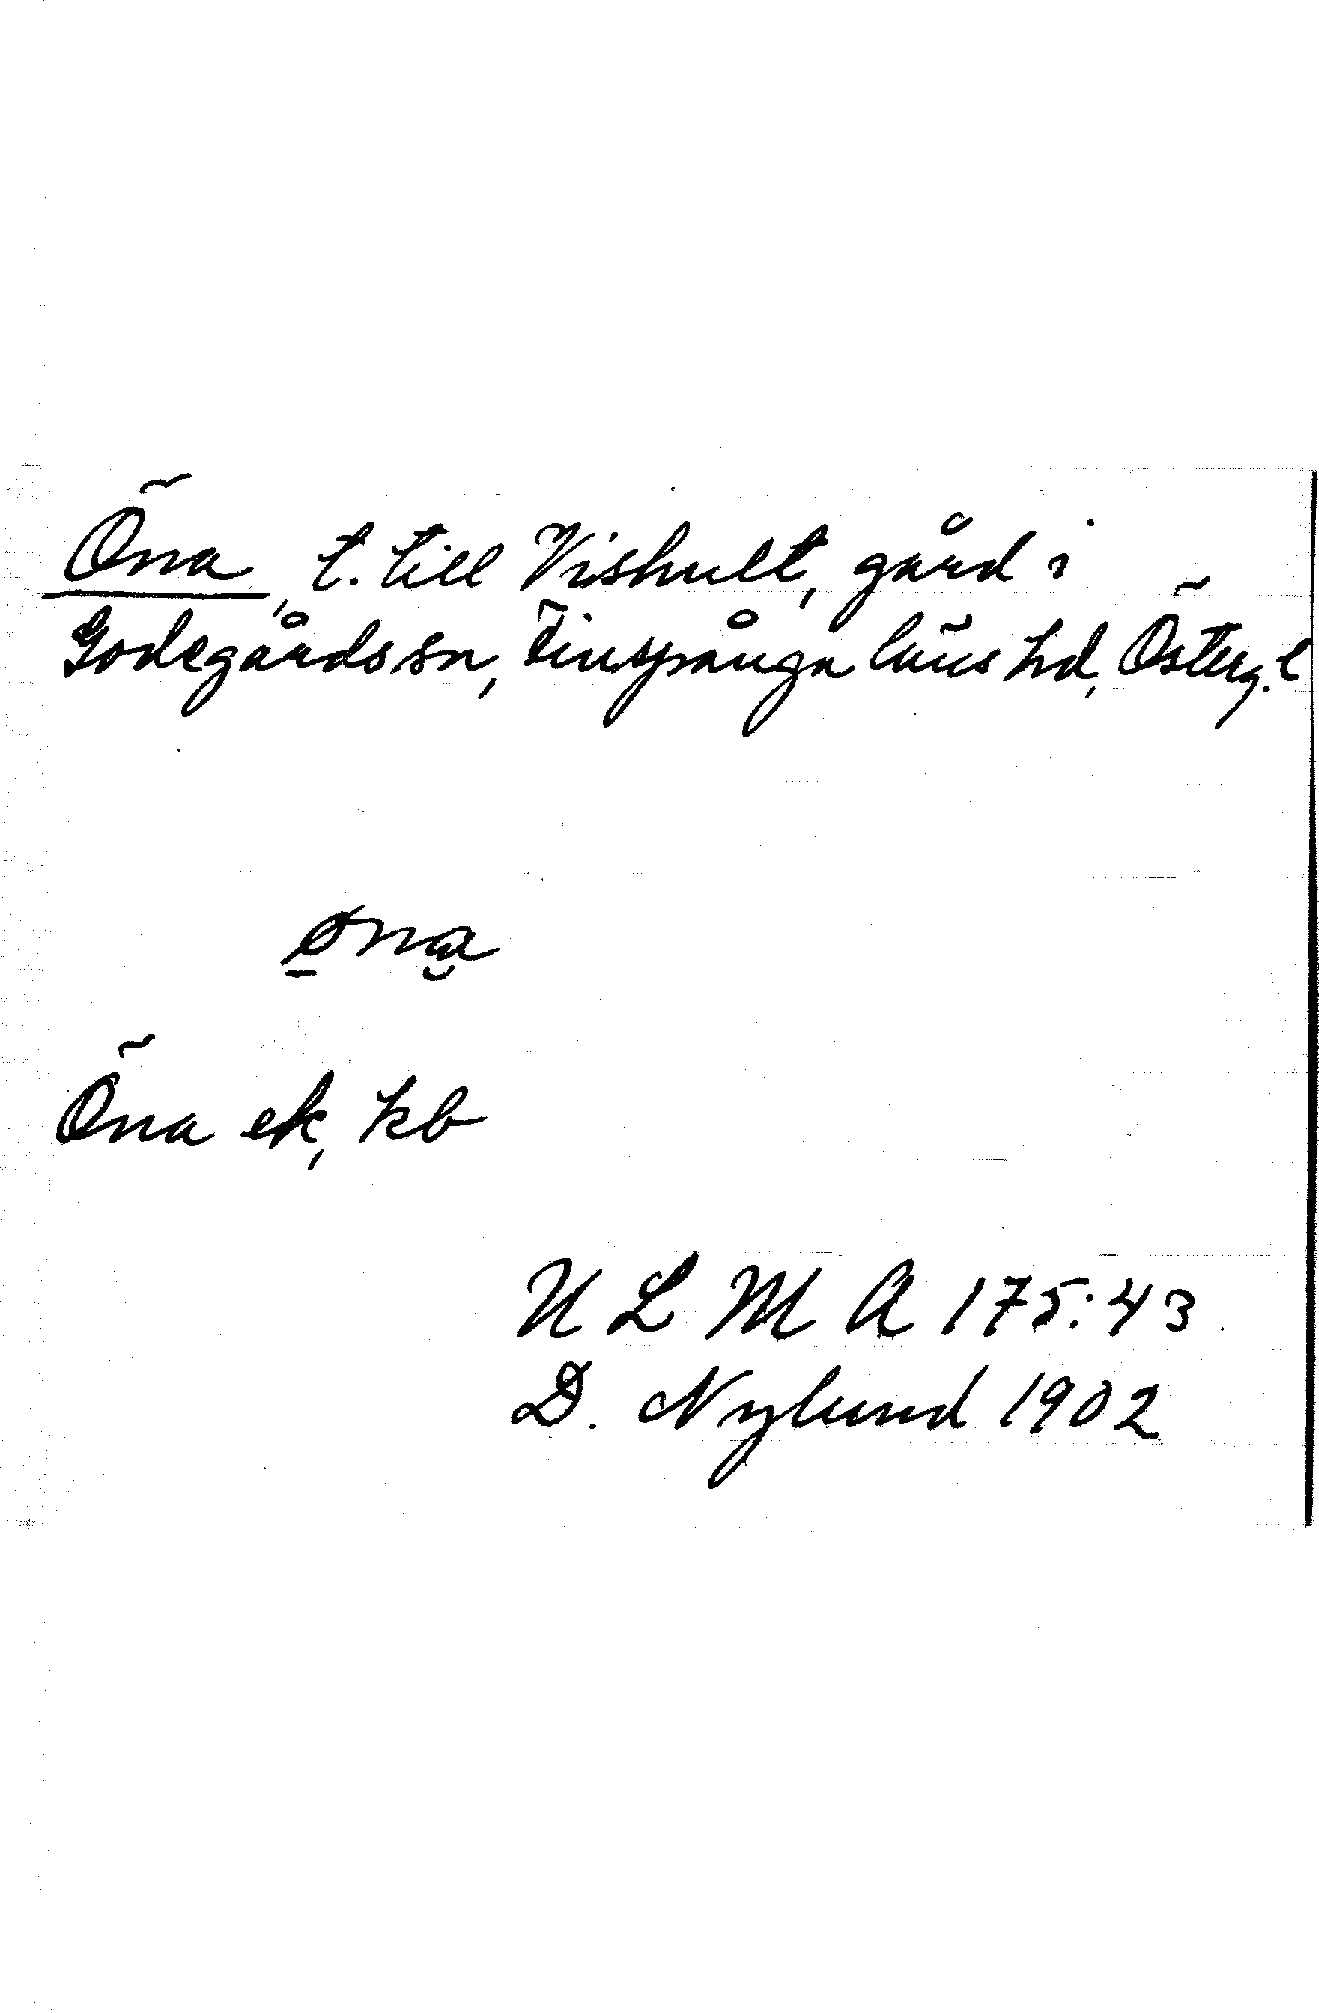 Öna, t. till Vishult, gård i
Godegårds sn, Finspånga läns hd, Österg. l
øna
Öna ek, kb
ULMA 175:43
D. Nylund 1902